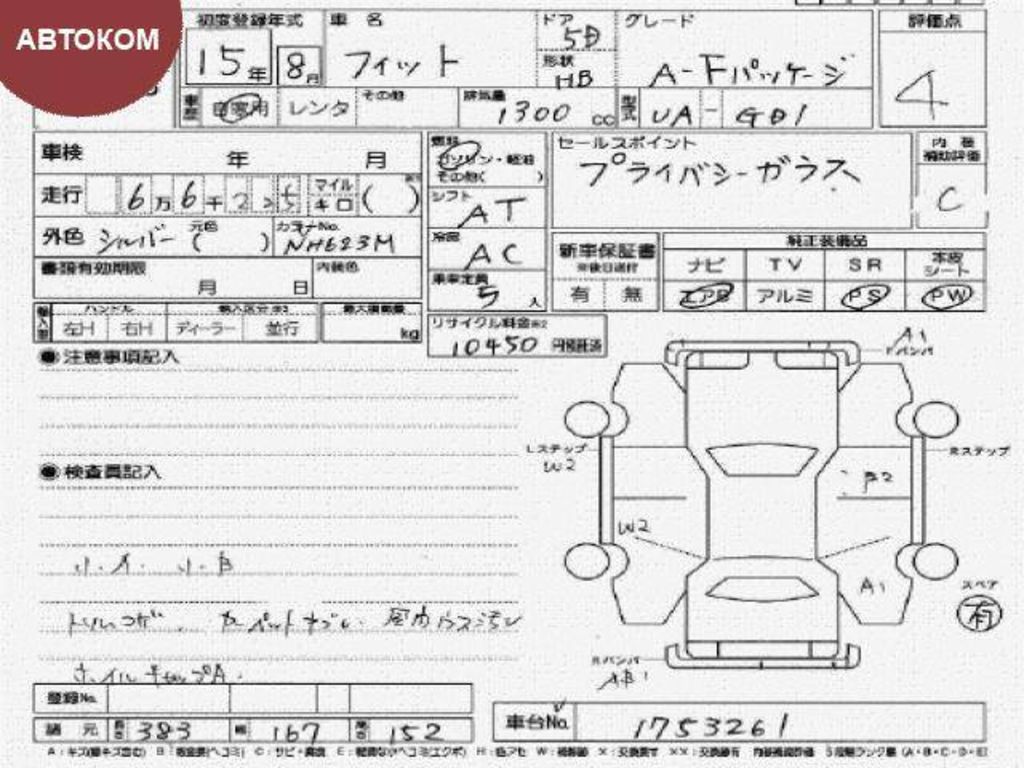 АВТОКОМ
初度登録年式 車名 ドア グレード 評価点
15年 8月 フィット 5D 形状 HB A-Fパッケージ 4
車歴 自家用 レンタ その他 排気量 1300 cc 型式 UA-GD1
車検 年 月 燃料 ガソリン・軽油 その他( ) セールスポイント 内装補助評価
プライバシーガラス C
走行 6万6千225 マイル キロ ( ) シフト AT
外色 シルバー 元色 ( ) カラーNo. NH623M 冷房 AC 新車保証書 ※後日送付 純正装備品
ナビ TV SR 本皮シート
書類有効期限 月 日 内装色 乗車定員 5人 有 無 エアB アルミ PS PW
輸入車 ハンドル 左H 右H 輸入区分 ディーラー 並行 最大積載量 kg
リサイクル料金 10450 円預託済
●注意事項記入
A1
Fバンパ
Lステップ W2
Rステップ
●検査員記入
B2
W2
小.A. 小.B
A1
スペア 有
Rバンパ AB1
登録No.
諸元 長さ 383 幅 167 高さ 152 車台No. 1753261